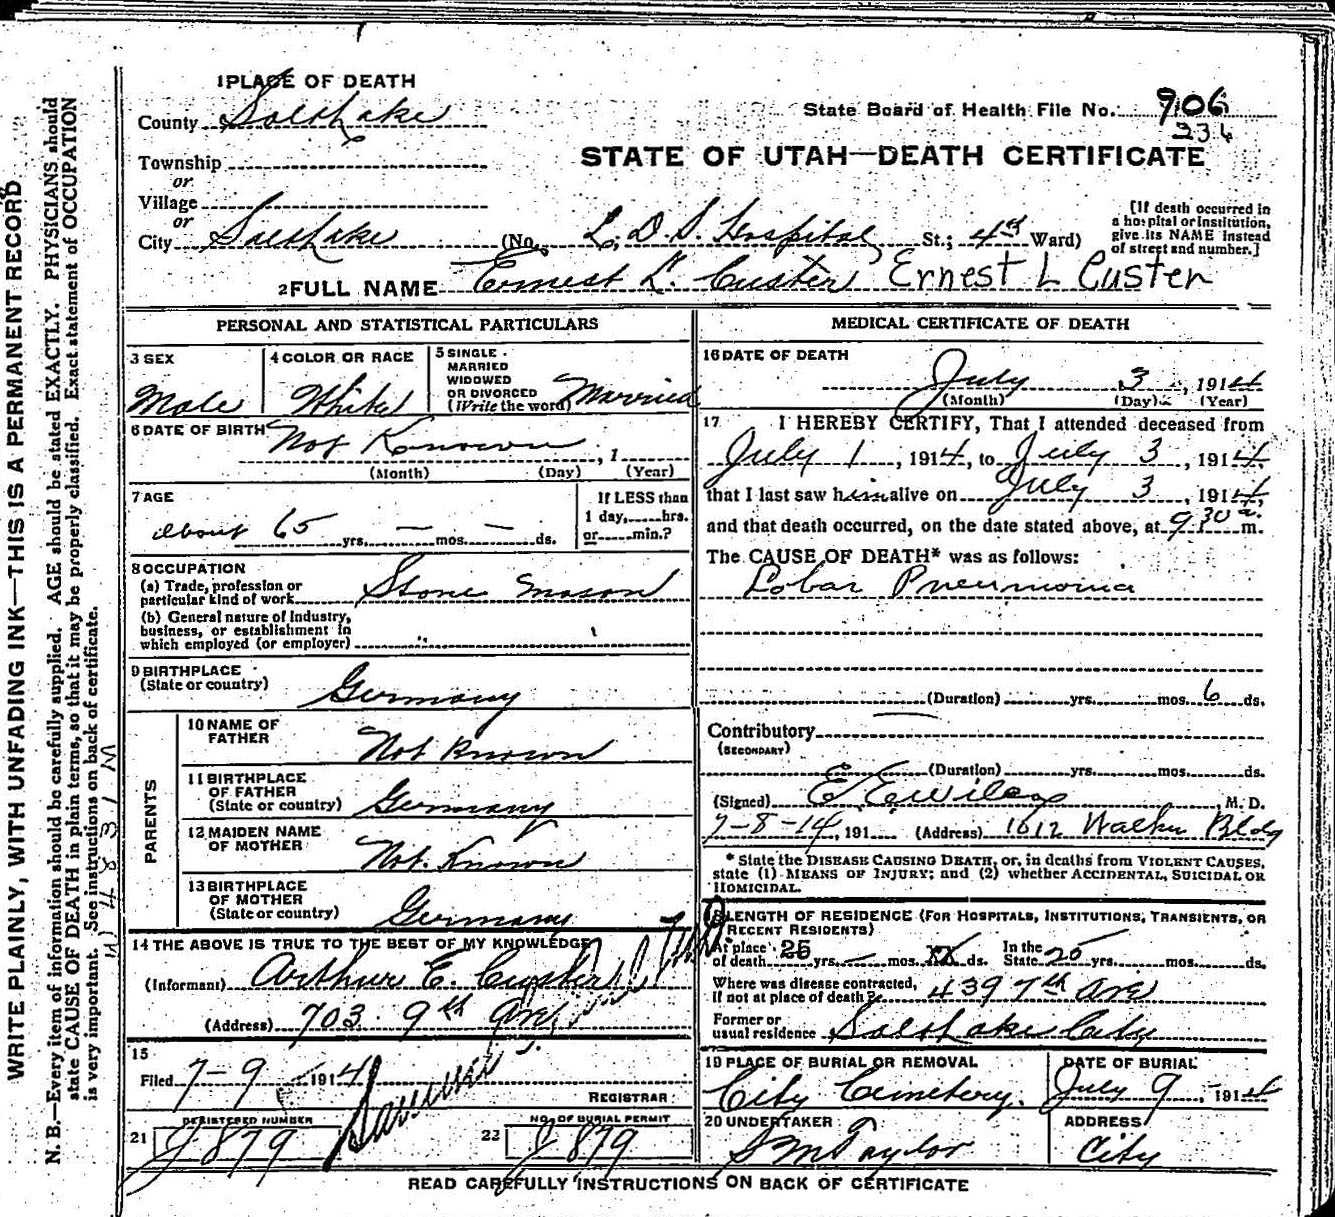 1 PLACE OF DEATH
County Salt Lake
State Board of Health File No. 906
234
Township
or
Village
or
City Salt Lake (No. L. D. S. Hospital St.; 4th Ward)
STATE OF UTAH—DEATH CERTIFICATE
[If death occurred in
a hospital or institution,
give its NAME instead
of street and number.]
2 FULL NAME Ernest L. Custer Ernest L Custer
PERSONAL AND STATISTICAL PARTICULARS
3 SEX
Male
4 COLOR OR RACE
White
5 SINGLE
MARRIED
WIDOWED
OR DIVORCED
(Write the word) Married
6 DATE OF BIRTH Not Known, 1
(Month) (Day) (Year)
7 AGE
about 65 yrs. — mos. — ds.
If LESS than
1 day, hrs.
or min.?
8 OCCUPATION
(a) Trade, profession or
particular kind of work Stone Mason
(b) General nature of Industry,
business, or establishment in
which employed (or employer)
9 BIRTHPLACE
(State or country) Germany
PARENTS
10 NAME OF
FATHER Not Known
11 BIRTHPLACE
OF FATHER
(State or country) Germany
12 MAIDEN NAME
OF MOTHER Not Known
13 BIRTHPLACE
OF MOTHER
(State or country) Germany
14 THE ABOVE IS TRUE TO THE BEST OF MY KNOWLEDGE
(Informant) Arthur E. Custer
(Address) 703 9th Ave
15
Filed 7-9 1914
REGISTRAR
REGISTERED NUMBER
21 J 879
NO. OF BURIAL PERMIT
22 J 879
MEDICAL CERTIFICATE OF DEATH
16 DATE OF DEATH
July 3, 1914
(Month) (Day) (Year)
17 I HEREBY CERTIFY, That I attended deceased from
July 1, 1914, to July 3, 1914,
that I last saw him alive on July 3, 1914,
and that death occurred, on the date stated above, at 9 30 a. m.
The CAUSE OF DEATH* was as follows:
Lobar Pneumonia
(Duration) yrs. mos. 6 ds.
Contributory —
(SECONDARY)
(Duration) yrs. mos. ds.
(Signed) E. E. Wilcox, M. D.
7-8-14, 191 (Address) 1612 Walker Bldg
* State the DISEASE CAUSING DEATH, or, in deaths from VIOLENT CAUSES,
state (1) MEANS OF INJURY; and (2) whether ACCIDENTAL, SUICIDAL OR
HOMICIDAL.
18 LENGTH OF RESIDENCE (FOR HOSPITALS, INSTITUTIONS, TRANSIENTS, OR
RECENT RESIDENTS)
At place of death 25 yrs. — mos. ds. In the State 25 yrs. mos. ds.
Where was disease contracted,
If not at place of death? 439 7th Ave
Former or
usual residence Salt Lake City
19 PLACE OF BURIAL OR REMOVAL
City Cemetery.
DATE OF BURIAL
July 9, 1914
20 UNDERTAKER
S M Taylor
ADDRESS
City
READ CAREFULLY INSTRUCTIONS ON BACK OF CERTIFICATE
WRITE PLAINLY, WITH UNFADING INK—THIS IS A PERMANENT RECORD
N. B.—Every item of information should be carefully supplied. AGE should be stated EXACTLY. PHYSICIANS should
state CAUSE OF DEATH in plain terms, so that it may be properly classified. Exact statement of OCCUPATION
is very important. See instructions on back of certificate.